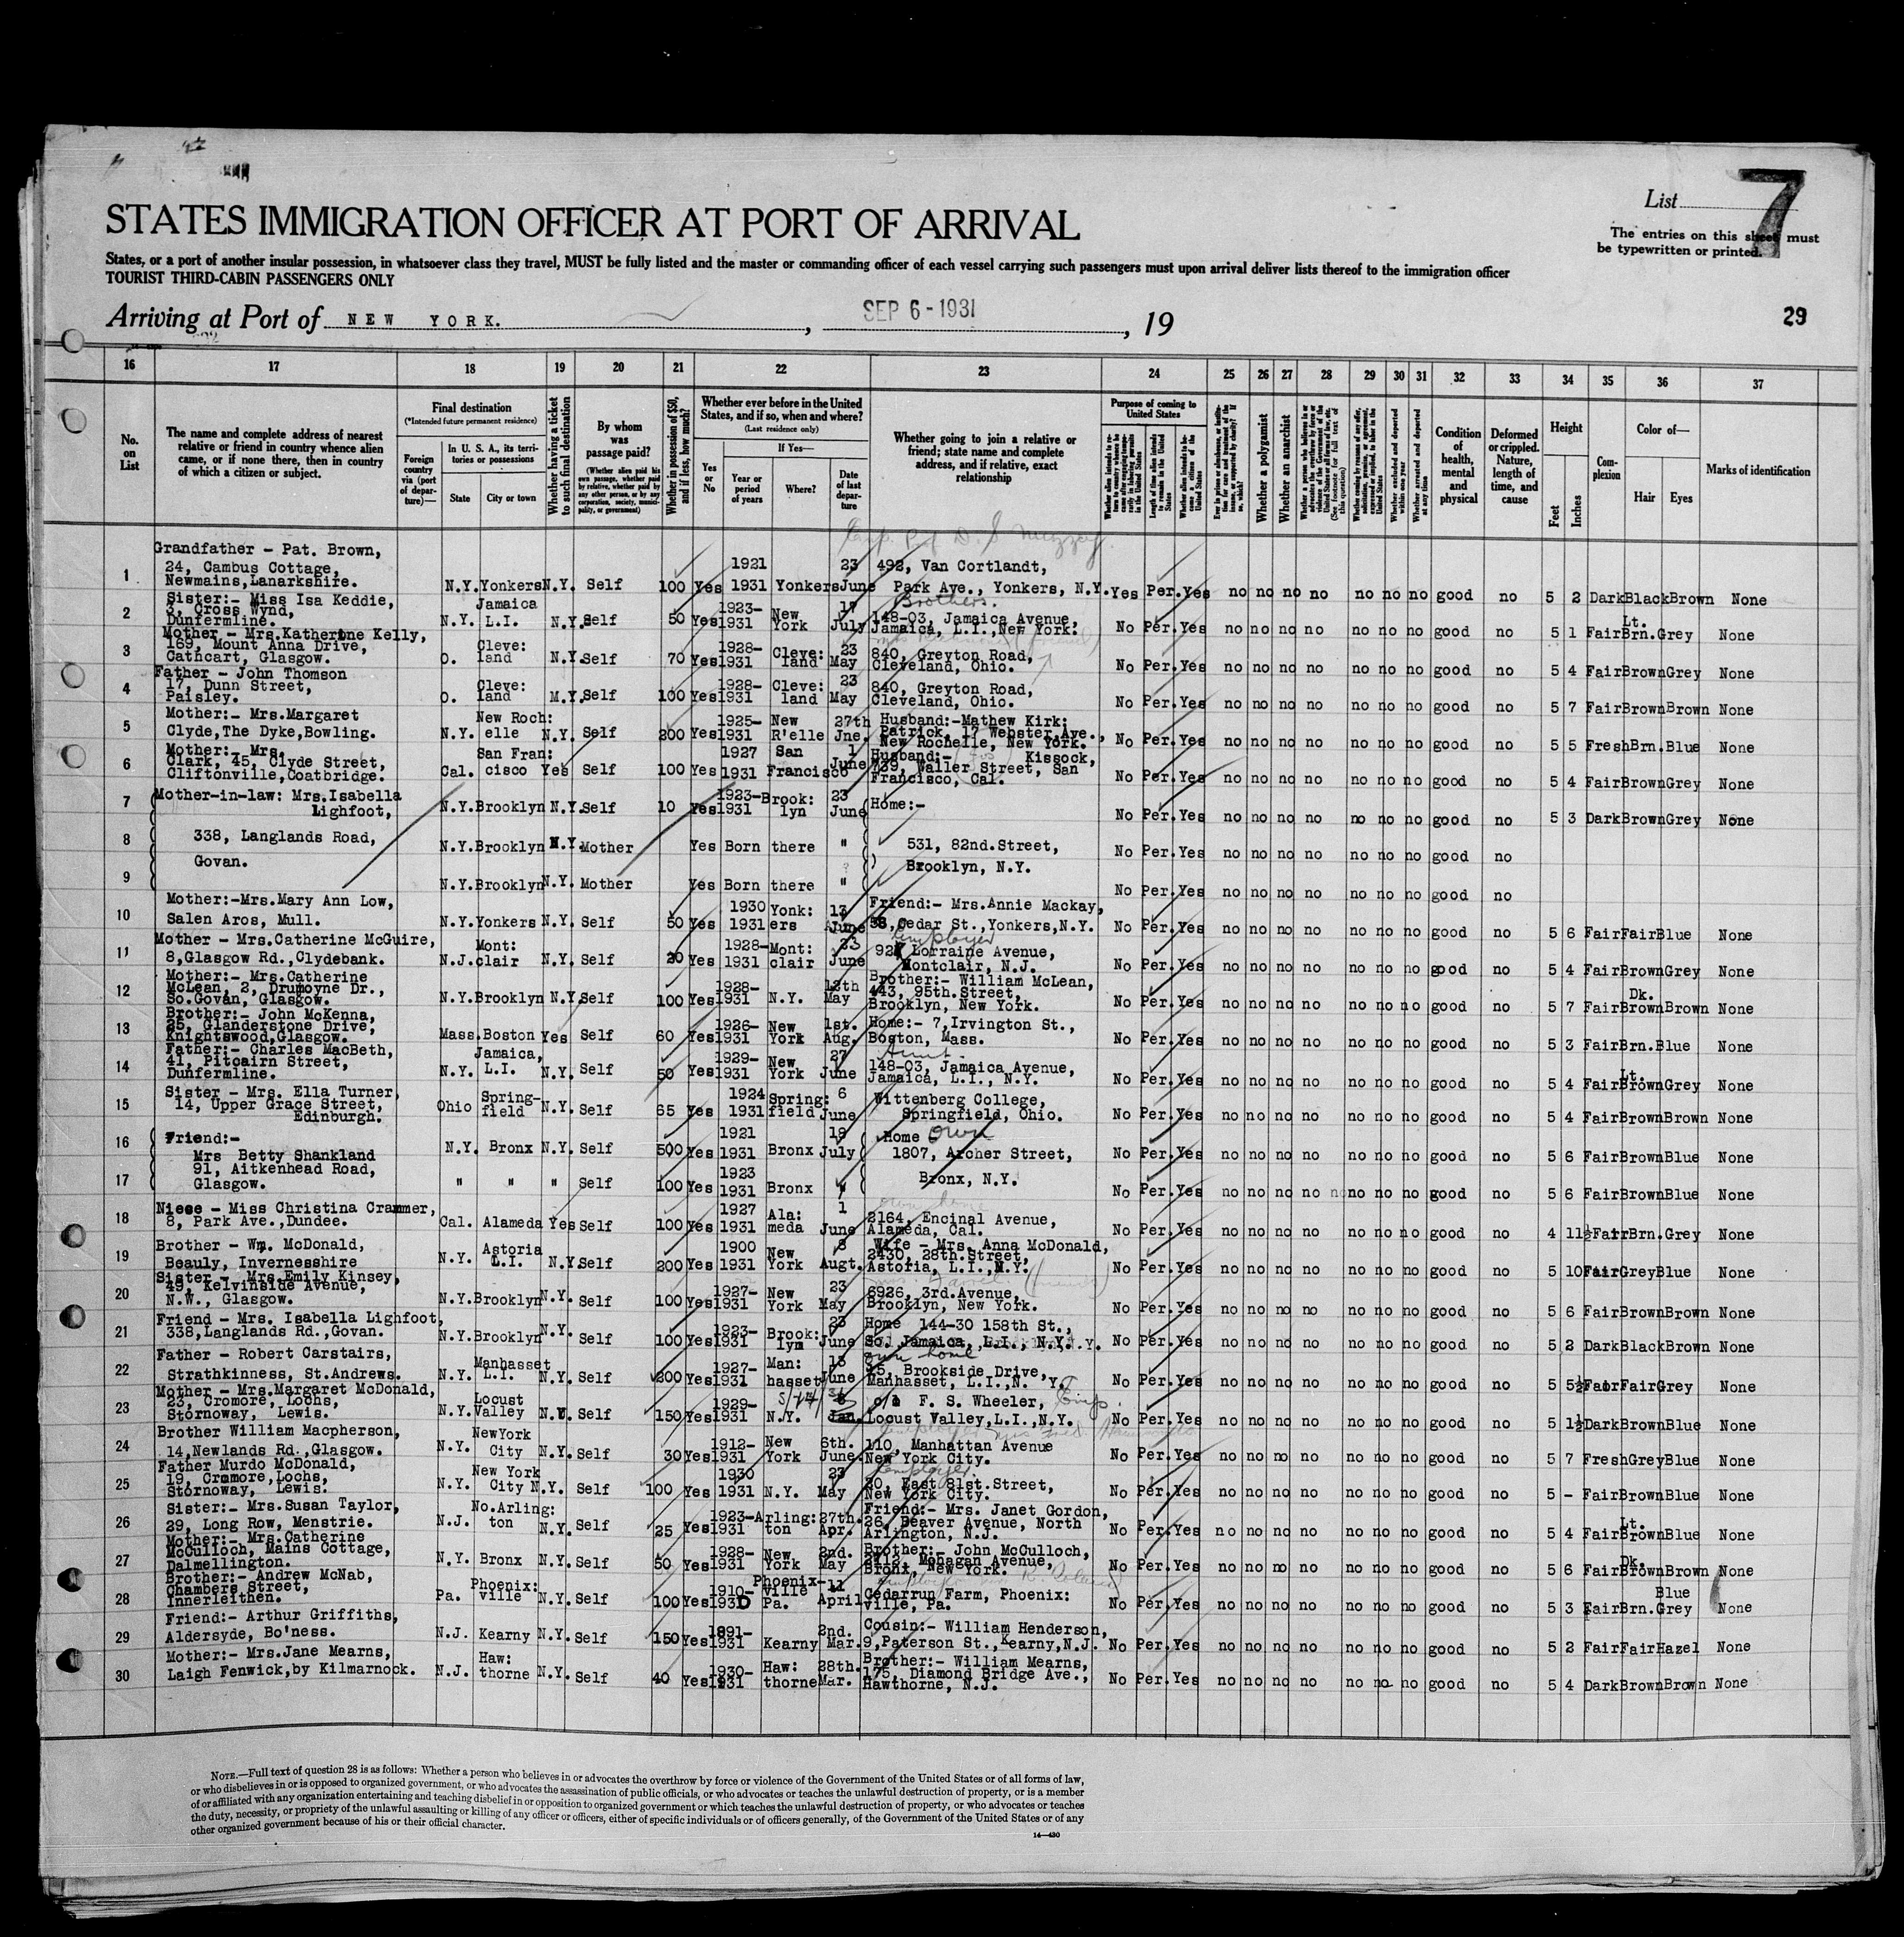 List 7
STATES IMMIGRATION OFFICER AT PORT OF ARRIVAL
The entries on this sheet must
be typewritten or printed.
States, or a port of another insular possession, in whatsoever class they travel, MUST be fully listed and the master or commanding officer of each vessel carrying such passengers must upon arrival deliver lists thereof to the immigration officer
TOURIST THIRD-CABIN PASSENGERS ONLY
Arriving at Port of NEW YORK. , SEP 6 - 1931 , 19
29
16 17 18 19 20 21 22 23 24 25 26 27 28 29 30 31 32 33 34 35 36 37
No. on List
The name and complete address of nearest relative or friend in country whence alien came, or if none there, then in country of which a citizen or subject.
Final destination
(*Intended future permanent residence)
Foreign country via (port of departure)—
In U. S. A., its territories or possessions
State
City or town
Whether having a ticket to such final destination
By whom was passage paid?
(Whether alien paid his own passage, whether paid by relative, whether paid by any other person, or by any corporation, society, municipality, or government)
Whether in possession of $50, and if less, how much?
Whether ever before in the United States, and if so, when and where?
(Last residence only)
Yes or No
If Yes—
Year or period of years
Where?
Date of last departure
Whether going to join a relative or friend; state name and complete address, and if relative, exact relationship
Purpose of coming to United States
Length of time alien intends to remain in the United States
Whether alien intends to become a citizen of the United States
Whether a polygamist
Whether an anarchist
(See footnote for full text of this question)
Whether excluded and deported within one year
Whether arrested and deported at any time
Condition of health, mental and physical
Deformed or crippled. Nature, length of time, and cause
Height
Feet
Inches
Complexion
Color of—
Hair
Eyes
Marks of identification
1 Grandfather - Pat. Brown, 24, Cambus Cottage, Newmains, Lanarkshire. N.Y. Yonkers N.Y. Self 100 Yes 1921 1931 Yonkers 23 June 492, Van Cortlandt, Park Ave., Yonkers, N.Y. Yes Per. Yes no no no no no no no good no 5 2 Dark Black Brown None
2 Sister:- Miss Isa Keddie, 3, Cross Wynd, Dunfermline. N.Y. Jamaica L.I. N.Y. Self 50 Yes 1923-1931 New York 17 July Brothers. 148-03, Jamaica Avenue, Jamaica, L.I., New York. No Per. Yes no no no no no no no good no 5 1 Fair Lt. Brn. Grey None
3 Mother - Mrs. Katherine Kelly, 169, Mount Anna Drive, Cathcart, Glasgow. O. Cleve: land N.Y. Self 70 Yes 1928-1931 Cleve: land 23 May 840, Greyton Road, Cleveland, Ohio. No Per. Yes no no no no no no no good no 5 4 Fair Brown Grey None
4 Father - John Thomson 17, Dunn Street, Paisley. O. Cleve: land N.Y. Self 100 Yes 1928-1931 Cleve: land 23 May 840, Greyton Road, Cleveland, Ohio. No Per. Yes no no no no no no no good no 5 7 Fair Brown Brown None
5 Mother:- Mrs. Margaret Clyde, The Dyke, Bowling. N.Y. New Roch: elle N.Y. Self 200 Yes 1925-1931 New R'elle 27th Jne. Husband:- Mathew Kirk: Patrick, 17 Webster Ave., New Rochelle, New York. No Per. Yes no no no no no no no good no 5 5 Fresh Brn. Blue None
6 Mother:- Mrs. Clark, 45, Clyde Street, Cliftonville, Coatbridge. Cal. San Fran: cisco Yes Self 100 Yes 1927 1931 San Francisco 1 June Husband:- Kissock, 739, Waller Street, San Francisco, Cal. No Per. Yes no no no no no no no good no 5 4 Fair Brown Grey None
7 Mother-in-law: Mrs. Isabella Lighfoot, N.Y. Brooklyn N.Y. Self 10 Yes 1923-1931 Brook: lyn 23 June Home:- No Per. Yes no no no no no no no good no 5 3 Dark Brown Grey None
8 338, Langlands Road, N.Y. Brooklyn N.Y. Mother Yes Born there " 531, 82nd. Street, No Per. Yes no no no no no no no good no
9 Govan. N.Y. Brooklyn N.Y. Mother Yes Born there " Brooklyn, N.Y. No Per. Yes no no no no no no no good no
10 Mother:- Mrs. Mary Ann Low, Salen Aros, Mull. N.Y. Yonkers N.Y. Self 50 Yes 1930 1931 Yonk: ers 13 June Friend:- Mrs. Annie Mackay, 58, Cedar St., Yonkers, N.Y. No Per. Yes no no no no no no no good no 5 6 Fair Fair Blue None
11 Mother - Mrs. Catherine McGuire, 8, Glasgow Rd., Clydebank. N.J. Mont: clair N.Y. Self 20 Yes 1928-1931 Mont: clair 23 June Employer 92 Lorraine Avenue, Montclair, N.J. No Per. Yes no no no no no no no good no 5 4 Fair Brown Grey None
12 Mother:- Mrs. Catherine McLean, 2, Drumoyne Dr., So. Govan, Glasgow. N.Y. Brooklyn N.Y. Self 100 Yes 1928-1931 N.Y. 12th May Brother:- William McLean, 443, 95th. Street, Brooklyn, New York. No Per. Yes no no no no no no no good no 5 7 Fair Dk. Brown Brown None
13 Brother:- John McKenna, 25, Glanderstone Drive, Knightswood, Glasgow. Mass. Boston Yes Self 60 Yes 1926-1931 New York 1st. Aug. Home:- 7, Irvington St., Boston, Mass. No Per. Yes no no no no no no no good no 5 3 Fair Brn. Blue None
14 Father:- Charles MacBeth, 41, Pitcairn Street, Dunfermline. N.Y. Jamaica, L.I. N.Y. Self 50 Yes 1929-1931 New York 27 June Aunt 148-03, Jamaica Avenue, Jamaica, L.I., N.Y. No Per. Yes no no no no no no no good no 5 4 Fair Lt. Brown Grey None
15 Sister - Mrs. Ella Turner, 14, Upper Grace Street, Edinburgh. Ohio Spring-field N.Y. Self 65 Yes 1924 1931 Spring: field 6 June Wittenberg College, Springfield, Ohio. No Per. Yes no no no no no no no good no 5 4 Fair Brown Brown None
16 Friend:- Mrs Betty Shankland N.Y. Bronx N.Y. Self 500 Yes 1921 1931 Bronx 18 July Home own 1807, Archer Street, No Per. Yes no no no no no no no good no 5 6 Fair Brown Blue None
17 91, Aitkenhead Road, Glasgow. " " " Self 100 Yes 1923 1931 Bronx " Bronx, N.Y. No Per. Yes no no no no no no no good no 5 6 Fair Brown Blue None
18 Niece - Miss Christina Crammer, 8, Park Ave., Dundee. Cal. Alameda Yes Self 100 Yes 1927 1931 Ala: meda 1 June own home 2164, Encinal Avenue, Alameda, Cal. No Per. Yes no no no no no no no good no 4 11½ Fair Brn. Grey None
19 Brother - Wm. McDonald, Beauly, Invernesshire N.Y. Astoria L.I. N.Y. Self 200 Yes 1900 1931 New York 8 Augt. Wife - Mrs. Anna McDonald, 2430, 28th. Street, Astoria, L.I., N.Y. No Per. Yes no no no no no no no good no 5 10 Fair Grey Blue None
20 Sister - Mrs. Emily Kinsey, 49, Kelvinside Avenue, N.W., Glasgow. N.Y. Brooklyn N.Y. Self 100 Yes 1927-1931 New York 23 May 6926, 3rd. Avenue, Brooklyn, New York. No Per. Yes no no no no no no no good no 5 6 Fair Brown Brown None
21 Friend - Mrs. Isabella Lighfoot, 338, Langlands Rd., Govan. N.Y. Brooklyn N.Y. Self 100 Yes 1923-1931 Brook: lyn 23 June Home 144-30 158th St., So. Jamaica, L.I., N.Y. No Per. Yes no no no no no no no good no 5 2 Dark Black Brown None
22 Father - Robert Carstairs, Strathkinness, St. Andrews. N.Y. Manhasset L.I. N.Y. Self 300 Yes 1927-1931 Man: hasset 13 June own home 75, Brookside Drive, Manhasset, L.I., N. Y. No Per. Yes no no no no no no no good no 5 5½ Fair Fair Grey None
23 Mother - Mrs. Margaret McDonald, 23, Cromore, Lochs, Stornoway, Lewis. N.Y. Locust Valley N.Y. Self 150 Yes 1929-1931 N.Y. Jan. c/o F. S. Wheeler, Emp. Locust Valley, L.I., N.Y. No Per. Yes no no no no no no no good no 5 1½ Dark Brown Blue None
24 Brother William Macpherson, 14, Newlands Rd., Glasgow. N.Y. New York City N.Y. Self 30 Yes 1912-1931 New York 6th. June. 110, Manhattan Avenue New York City. No Per. Yes no no no no no no no good no 5 7 Fresh Grey Blue None
25 Father Murdo McDonald, 19, Cromore, Lochs, Stornoway, Lewis. N.Y. New York City N.Y. Self 100 Yes 1930 1931 N.Y. 23 May Employer. 20, East 81st. Street, New York City. No Per. Yes no no no no no no no good no 5 - Fair Brown Blue None
26 Sister:- Mrs. Susan Taylor, 29, Long Row, Menstrie. N.J. No. Arling: ton N.Y. Self 25 Yes 1923-1931 Arling: ton 27th. Apr. Friend:- Mrs. Janet Gordon, 26, Beaver Avenue, North Arlington, N.J. No Per. Yes no no no no no no no good no 5 4 Fair Lt. Brown Blue None
27 Mother:- Mrs. Catherine McCulloch, Mains Cottage, Dalmellington. N.Y. Bronx N.Y. Self 50 Yes 1928-1931 New York 2nd. May Brother:- John McCulloch, 2712, Mohagan Avenue, Bronx, New York. No Per. Yes no no no no no no no good no 5 6 Fair Dk. Brown Brown None
28 Brother:- Andrew McNab, Chambers Street, Innerleithen. Pa. Phoenix: ville N.Y. Self 100 Yes 1910-1930 Phoenix-ville Pa. 11 April Cedarrun Farm, Phoenix: ville, Pa. No Per. Yes no no no no no no no good no 5 3 Fair Brn. Blue Grey None
29 Friend:- Arthur Griffiths, Aldersyde, Bo'ness. N.J. Kearny N.Y. Self 150 Yes 1891-1931 Kearny 2nd. Mar. Cousin:- William Henderson, 9, Paterson St., Kearny, N.J. No Per. Yes no no no no no no no good no 5 2 Fair Fair Hazel None
30 Mother:- Mrs. Jane Mearns, Laigh Fenwick, by Kilmarnock. N.J. Haw: thorne N.Y. Self 40 Yes 1930-1931 Haw: thorne 28th. Mar. Brother:- William Mearns, 175, Diamond Bridge Ave., Hawthorne, N.J. No Per. Yes no no no no no no no good no 5 4 Dark Brown Brown None
NOTE.—Full text of question 28 is as follows: Whether a person who believes in or advocates the overthrow by force or violence of the Government of the United States or of all forms of law,
or who disbelieves in or is opposed to organized government, or who advocates the assassination of public officials, or who advocates or teaches the unlawful destruction of property, or is a member
of or affiliated with any organization entertaining and teaching disbelief in or opposition to organized government or which teaches the unlawful destruction of property, or who advocates or teaches
the duty, necessity, or propriety of the unlawful assaulting or killing of any officer or officers, either of specific individuals or of officers generally, of the Government of the United States or of any
other organized government because of his or their official character.
14—430